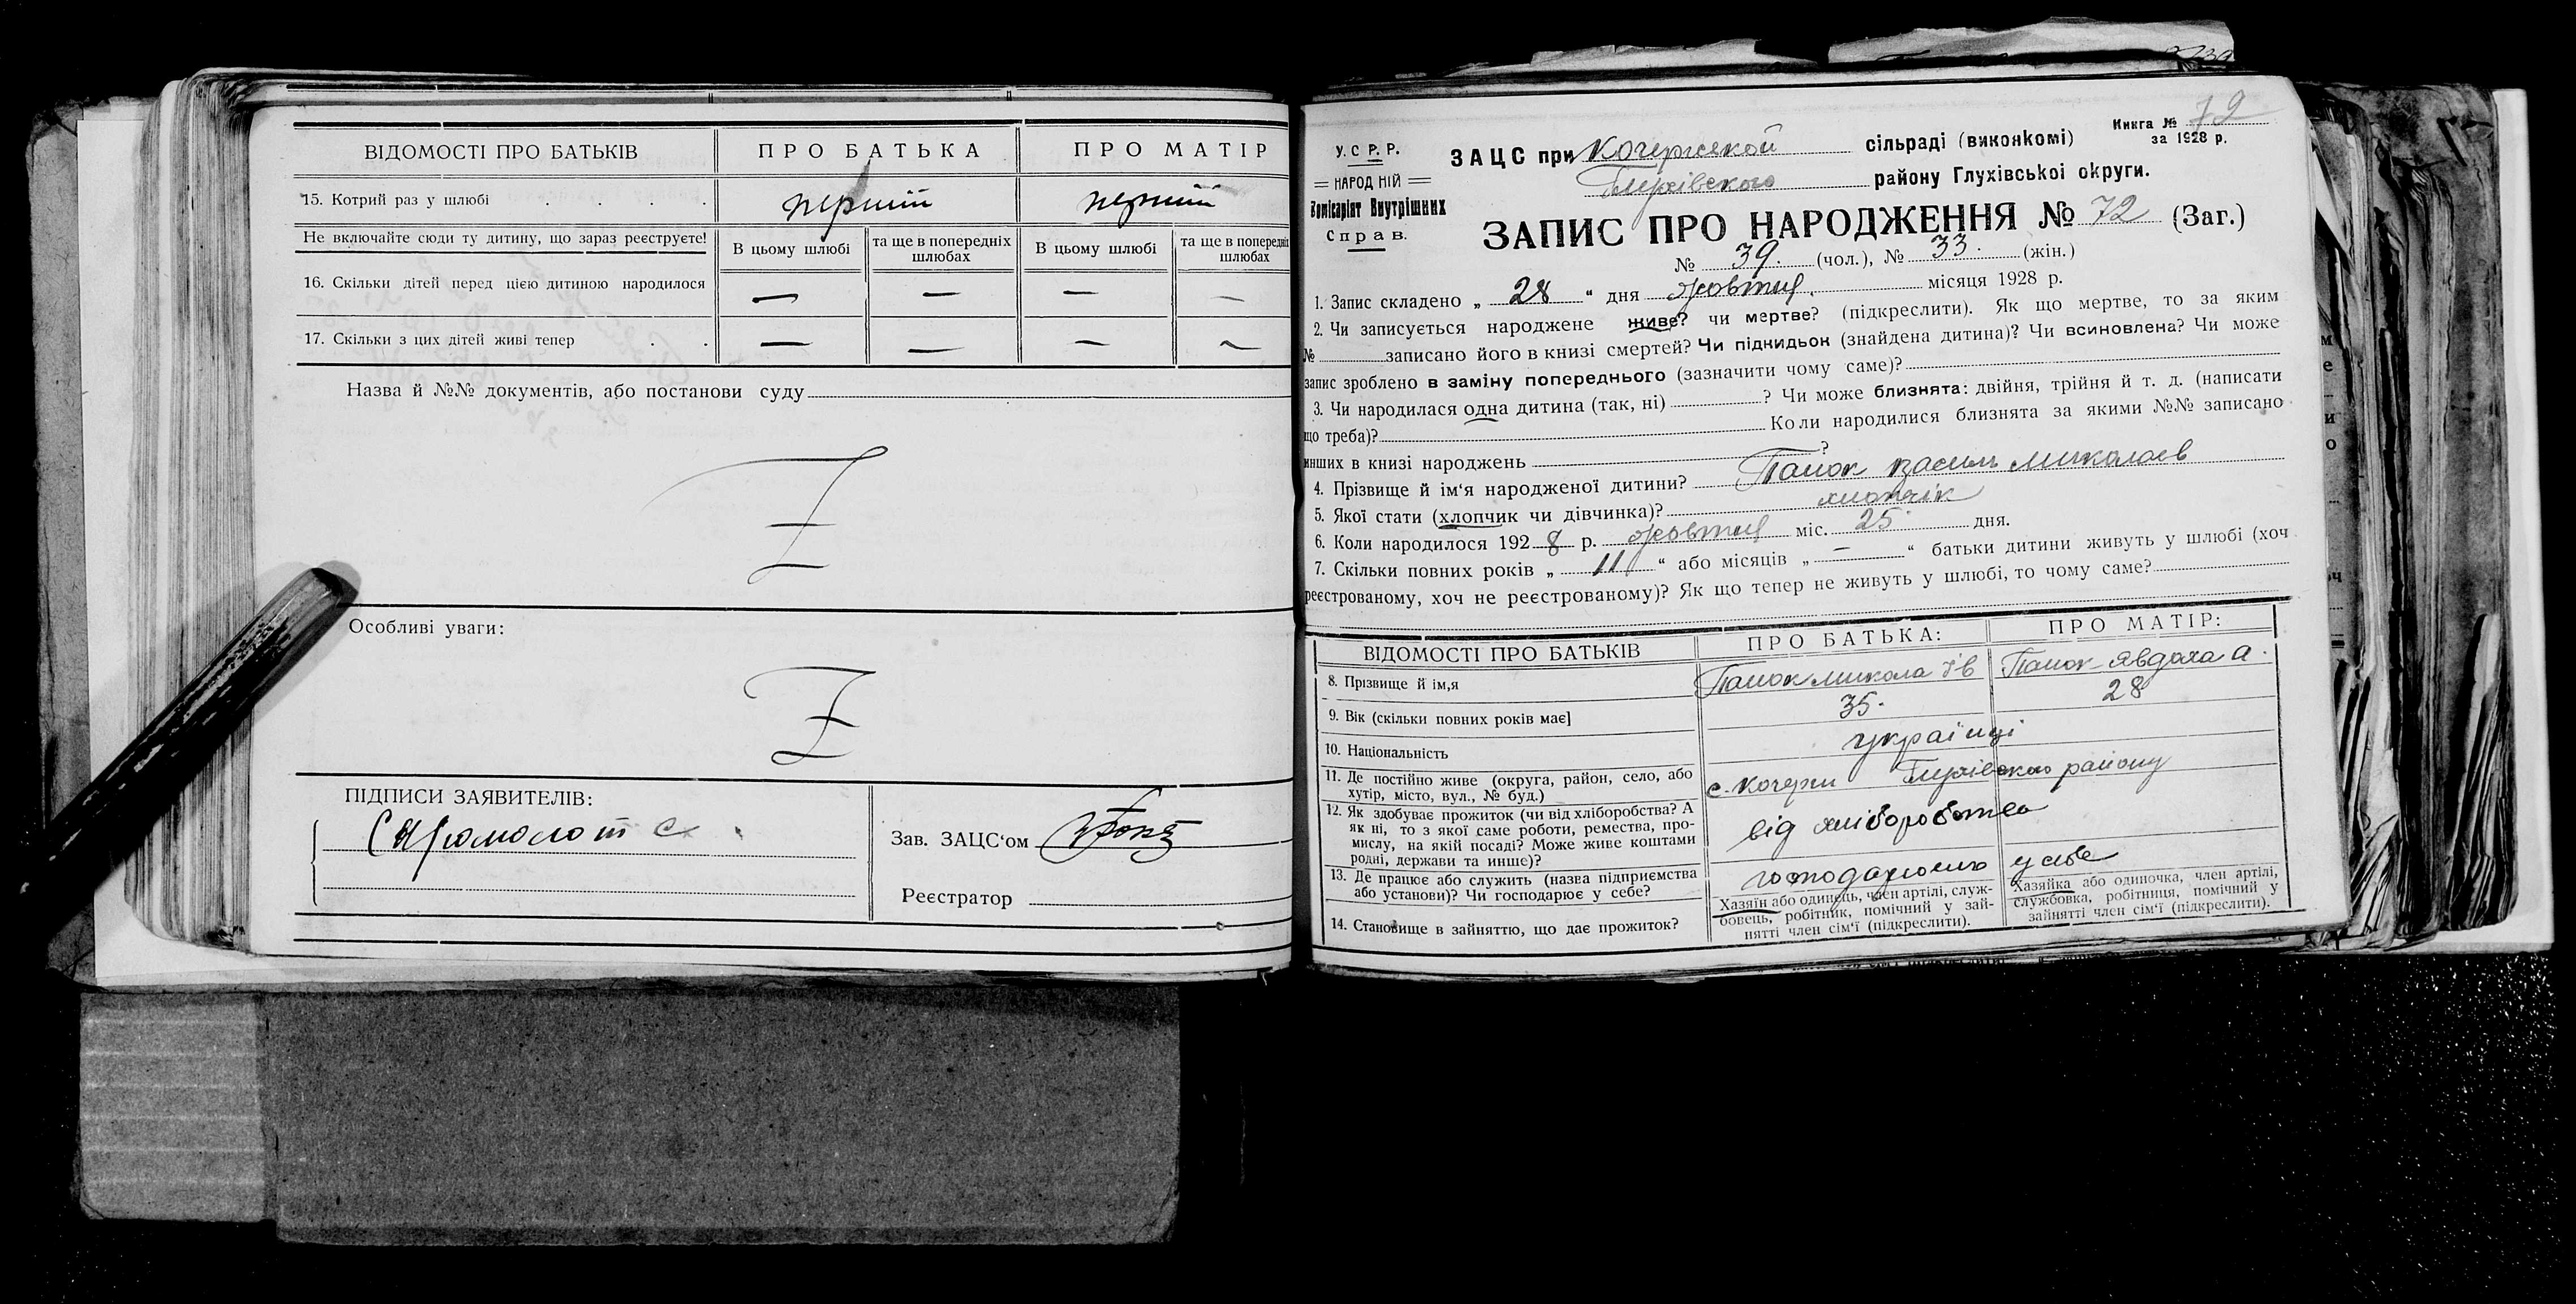 ВІДОМОСТІ ПРО БАТЬКІВ
ПРО БАТЬКА
ПРО МАТІР
15. Котрий раз у шлюбі
перший
перший
Не включайте сюди ту дитину, що зараз реєструєте!
В цьому шлюбі
та ще в попередніх шлюбах
В цьому шлюбі
та ще в попередніх шлюбах
16. Скільки дітей перед цією дитиною народилося
—
—
—
—
17. Скільки з цих дітей живі тепер
—
—
—
—
Назва й №№ документів, або постанови суду
Z
Особливі уваги:
Z
ПІДПИСИ ЗАЯВИТЕЛІВ:
Зав. ЗАЦС‘ом
Реєстратор
Книга № 72
за 1928 р.
У. С. Р. Р.
НАРОДНІЙ
Комісаріят Внутрішних
Справ.
ЗАЦС при Кочержской сільраді (викоякомі)
Глухівского району Глухівської округи.
ЗАПИС ПРО НАРОДЖЕННЯ № 72 (Заг.)
№ 39. (чол.), № 33. (жін.)
1. Запис складено „ 28 “ дня жовтня місяця 1928 р.
2. Чи записується народжене живе? чи мертве? (підкреслити). Як що мертве, то за яким
№ записано його в книзі смертей? Чи підкидьок (знайдена дитина)? Чи всиновлена? Чи може
запис зроблено в заміну попереднього (зазначити чому саме)?
3. Чи народилася одна дитина (так, ні) ? Чи може близнята: двійня, трійня й т. д. (написати
що треба)? Коли народилися близнята за якими №№ записано
инших в книзі народжень ?
4. Прізвище й ім‘я народженої дитини? Панок Василь Миколаєв
5. Якої стати (хлопчик чи дівчинка)? хлопчік
6. Коли народилося 1928 р. жовтня міс. 25 дня.
7. Скільки повних років „ 11 “ або місяців „ — “ батьки дитини живуть у шлюбі (хоч
реєстрованому, хоч не реєстрованому)? Як що тепер не живуть у шлюбі, то чому саме?
ВІДОМОСТІ ПРО БАТЬКІВ
ПРО БАТЬКА:
ПРО МАТІР:
8. Прізвище й ім,я
Панок Микола
Панок Явдоха А.
9. Вік (скільки повних років має]
35.
28
10. Національність
українці
11. Де постійно живе (округа, район, село, або
хутір, місто, вул., № буд.)
с. Кочерги Глухівского району
12. Як здобуває прожиток (чи від хліборобства? А
як ні, то з якої саме роботи, ремества, про-
мислу, на якій посаді? Може живе коштами
родні, держави та инше)?
від хліборобства
13. Де працює або служить (назва підприємства
або установи)? Чи господарює у себе?
у себе
14. Становище в зайняттю, що дає прожиток?
Хазяїн або одинець, член артілі, служ-
бовець, робітник, помічний у зай-
нятті член сім‘ї (підкреслити).
Хазяйка або одиночка, член артілі,
службовка, робітниця, помічний у
зайнятті член сім‘ї (підкреслити).